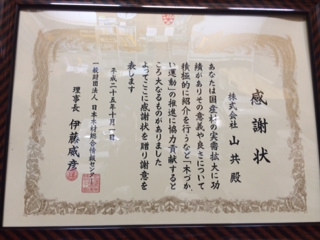 感謝状
株式会社 山共 殿
あなたは国産材の実需拡大に功
績がありその意義や良さについて
積極的に紹介を行うなど「木づか
い運動」の推進に協力貢献すると
ころ大なるものがありました
よってここに感謝状を贈り謝意を
表します
平成二十五年十月一日
一般財団法人 日本木材総合情報センター
理事長 伊藤威彦